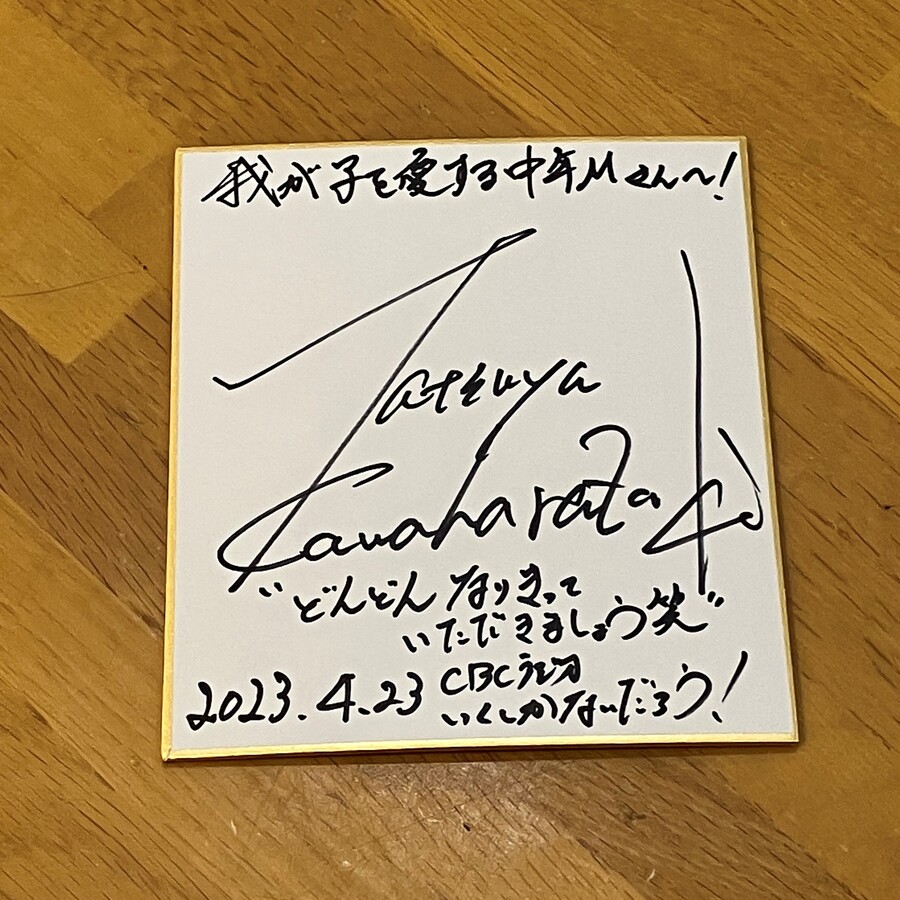 我が子を愛する中年Mさんへ!
Tatsuya
Kawaharata
"どんどんなりきって
いただきましょう笑"
2023.4.23
CBCラジオ
いくしかないだろう!